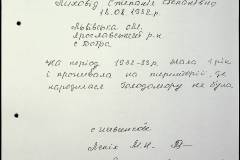 Лиховід Степанія Степанівна
12.04.1932 р.
Львівська обл.
Ярославський р-н
с
На період 1932-33р. Мала 1 рік
і проживала на території, де
народилася Голодомору не було.
с
М.И.